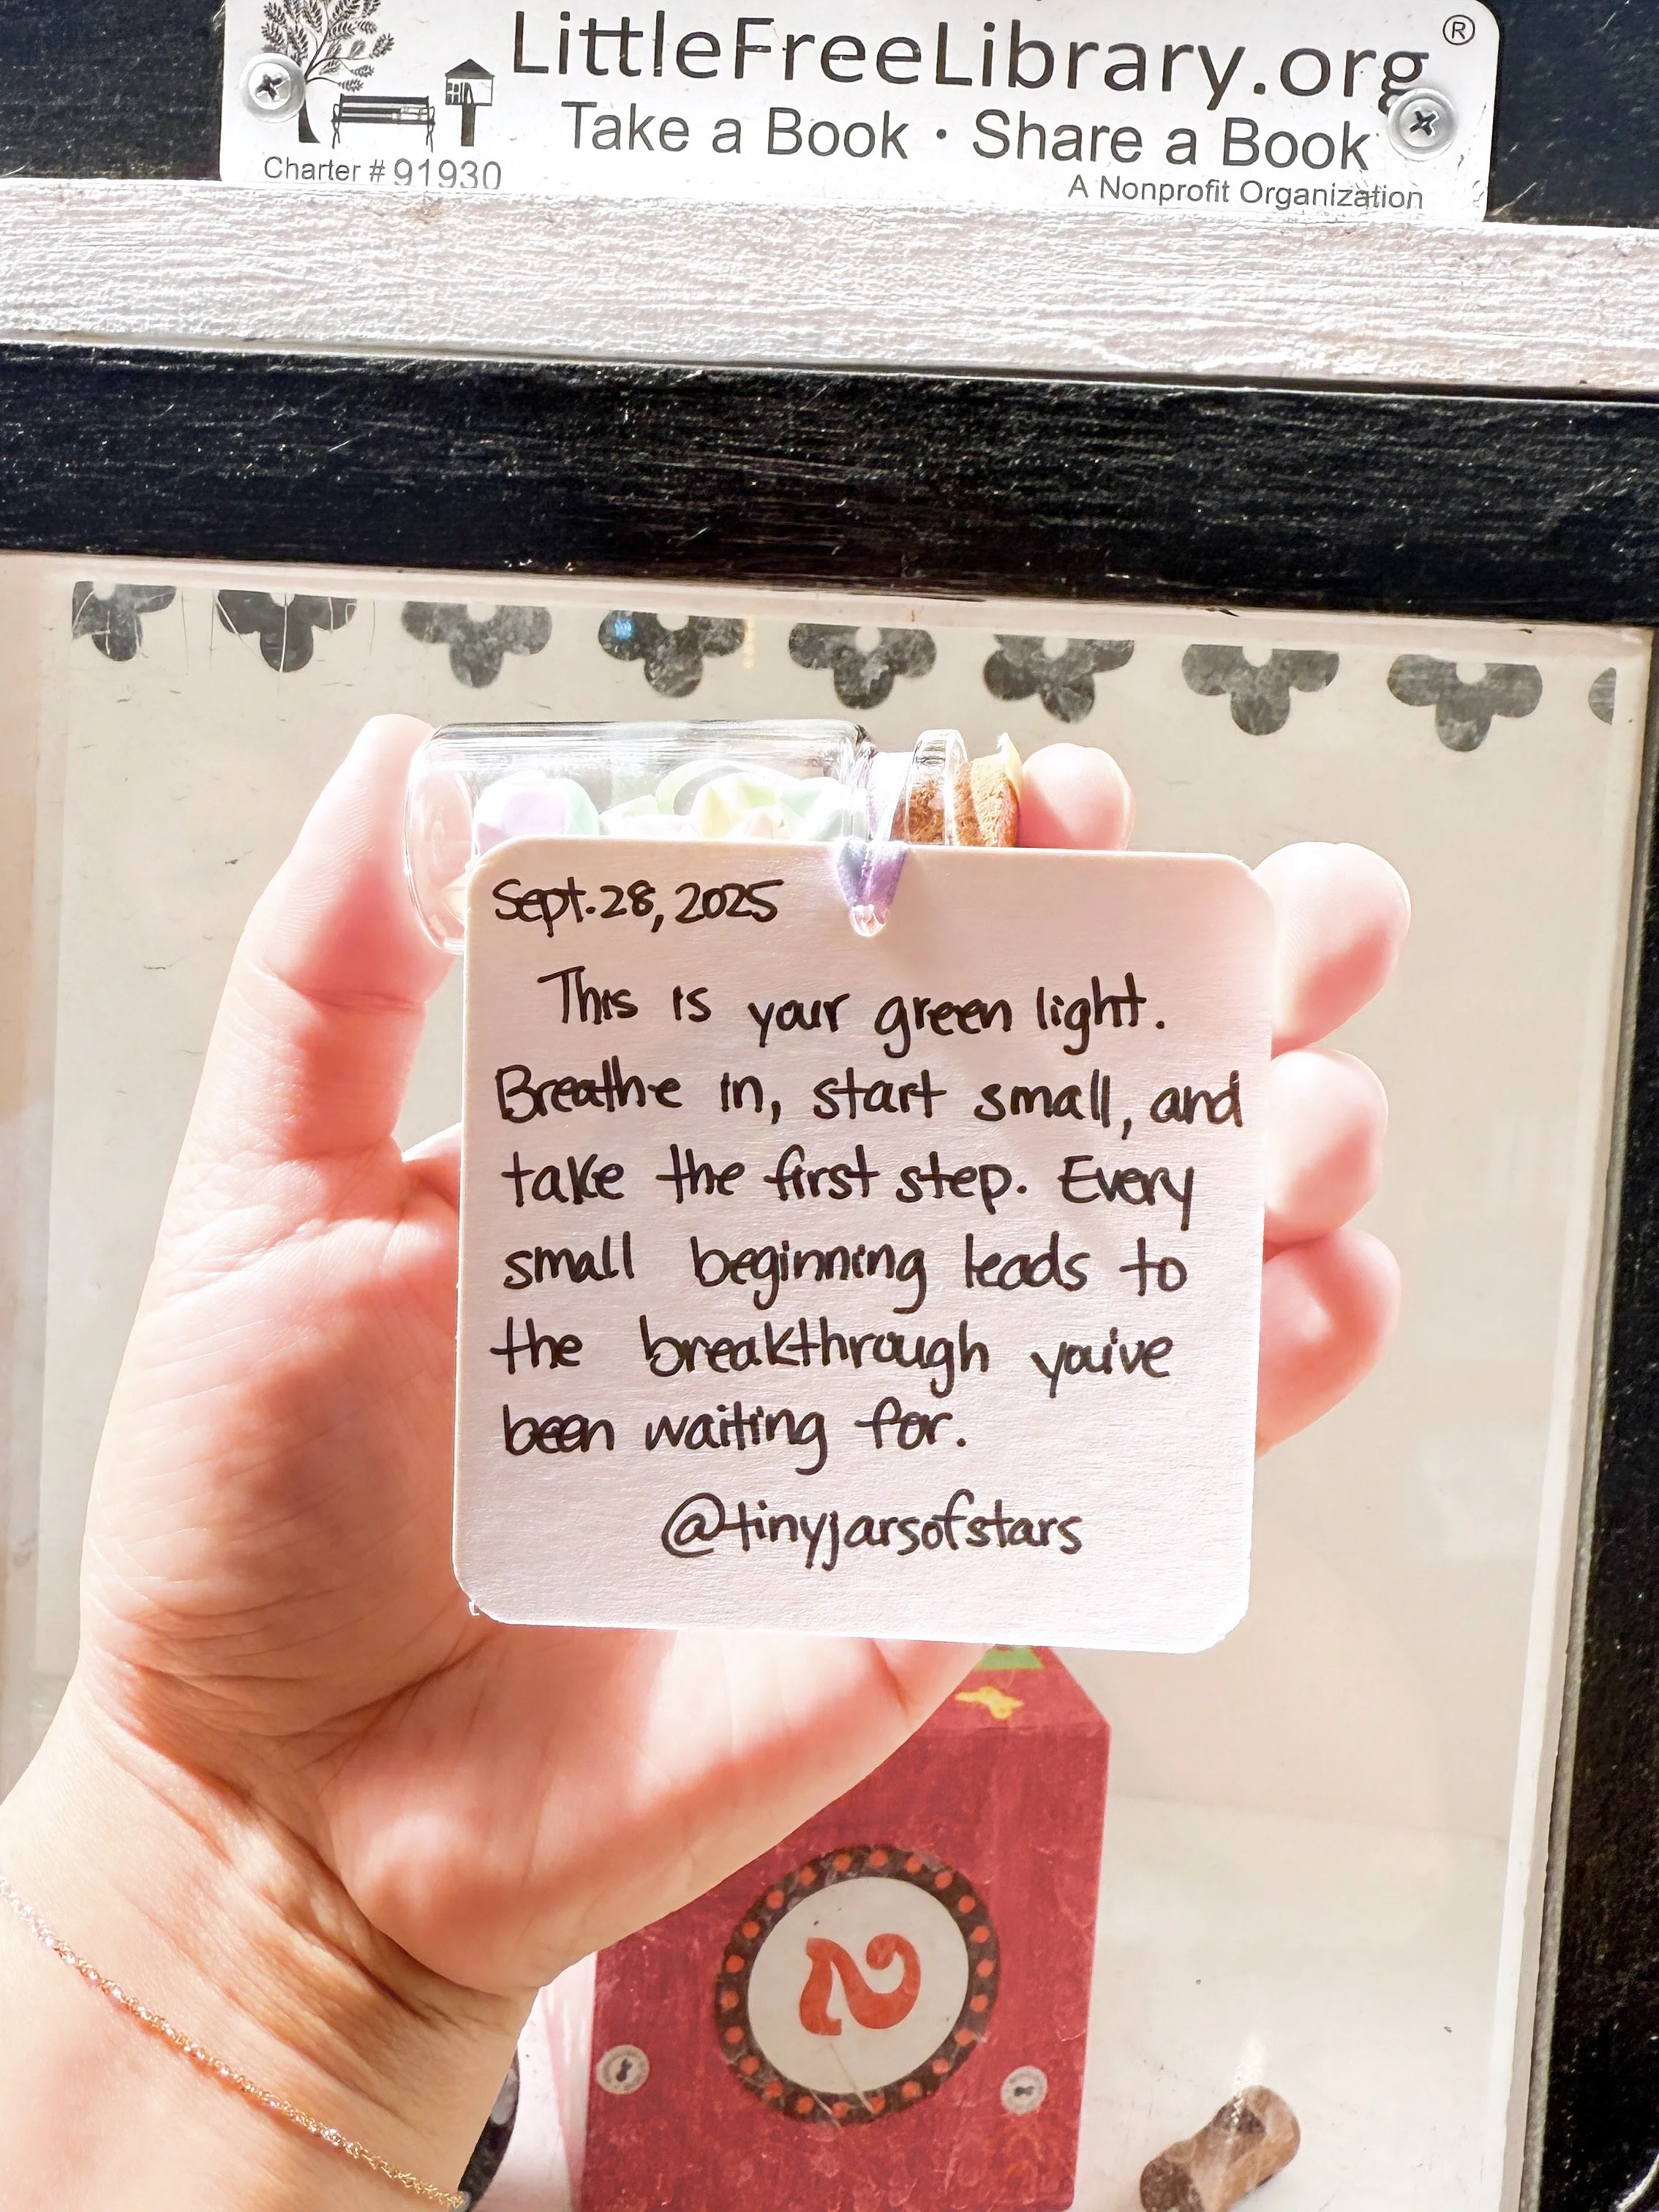 LittleFreeLibrary.org®
Take a Book · Share a Book
Charter # 91930
A Nonprofit Organization
Sept. 28, 2025
This is your green light.
Breathe in, start small, and
take the first step. Every
small beginning leads to
the breakthrough you've
been waiting for.
@tinyjarsofstars
2